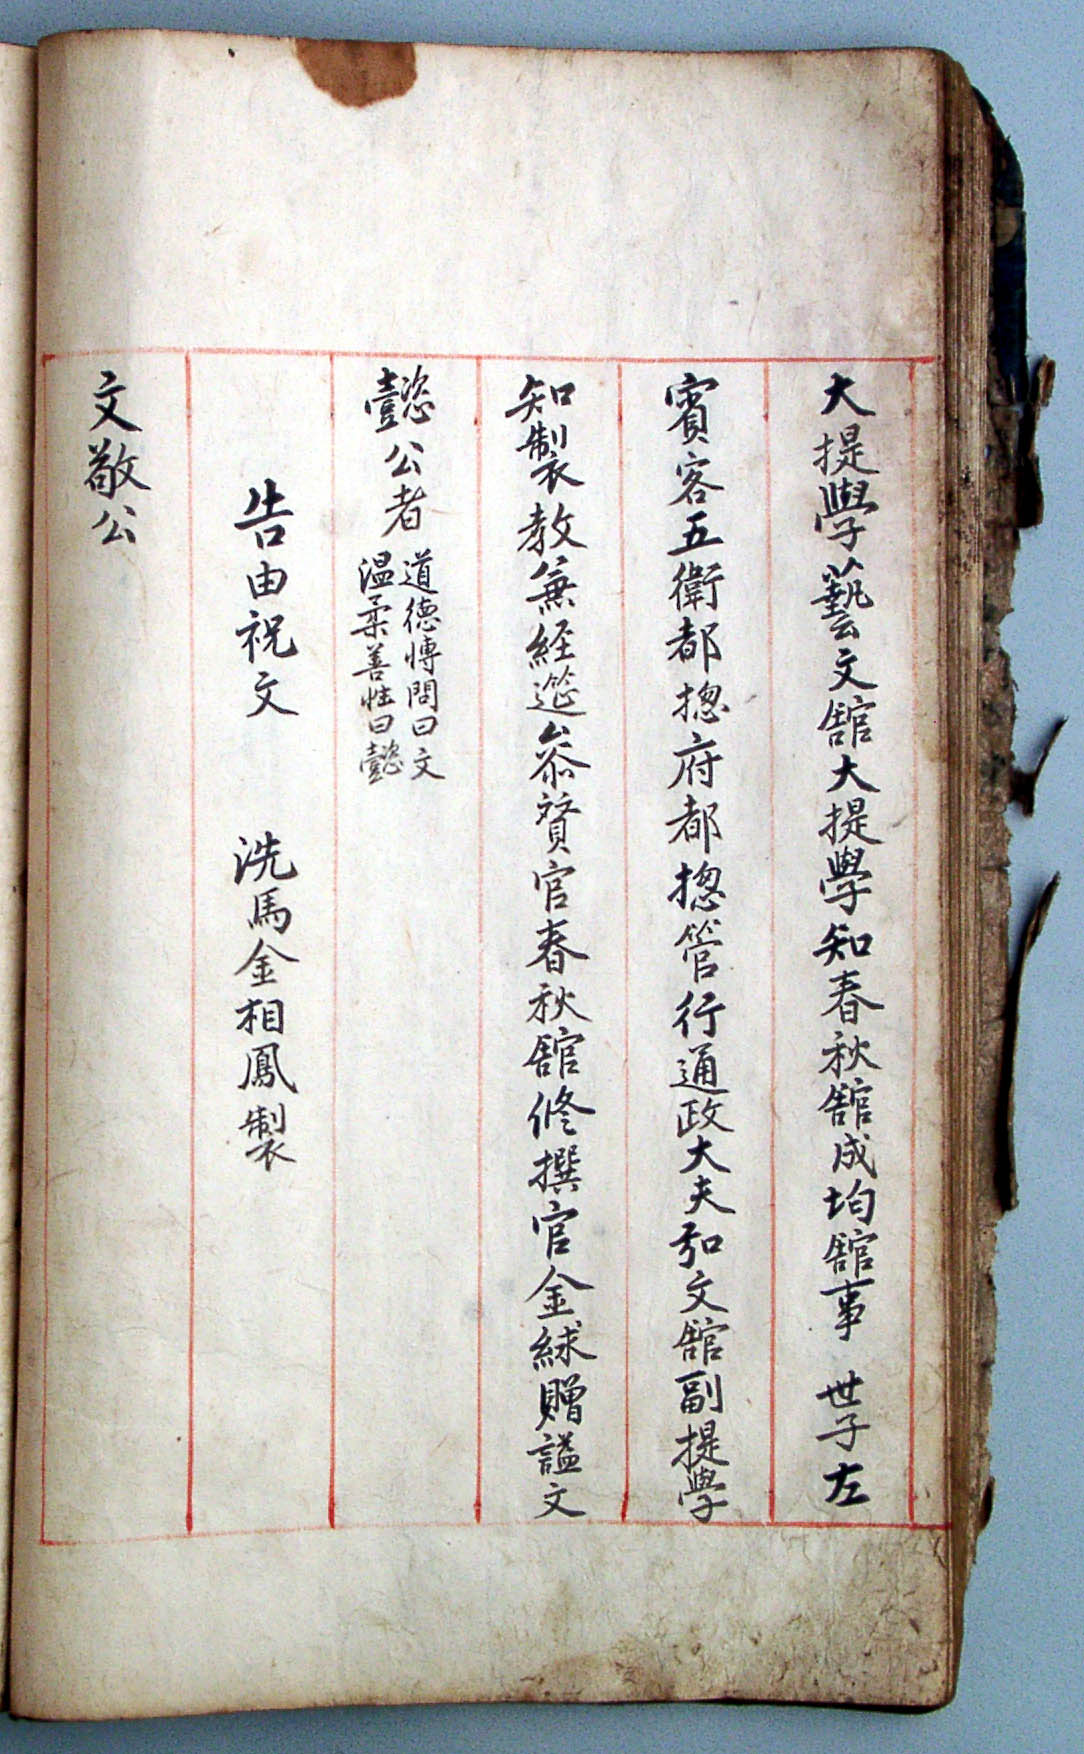 大提學藝文舘大提學知春秋舘成均舘事 世子左
賓客五衛都揔府都揔管行通政大夫弘文舘副提學
知製敎兼經筵叅贊官春秋舘修撰官金絿贈諡文
懿公者 道德博問曰文
温柔善性曰懿
告由祝文 洗馬金相鳳製
文敬公